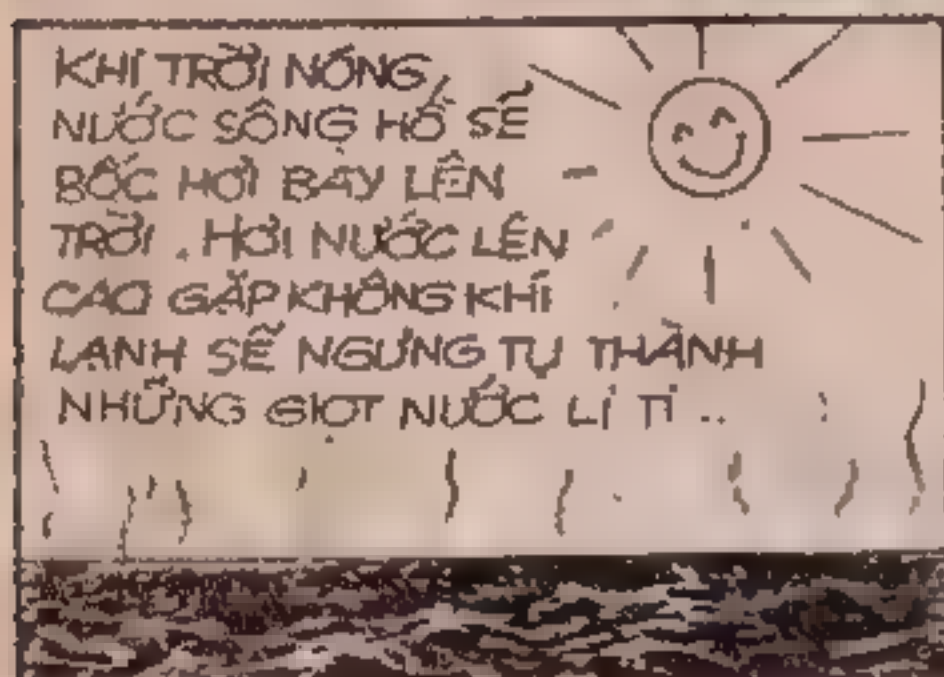 KHI TRỜI NÓNG,
NƯỚC SÔNG HỒ SẼ
BỐC HƠI BAY LÊN
TRỜI. HƠI NƯỚC LÊN
CAO GẶP KHÔNG KHÍ
LẠNH SẼ NGƯNG TỤ THÀNH
NHỮNG GIỌT NƯỚC LI TI..